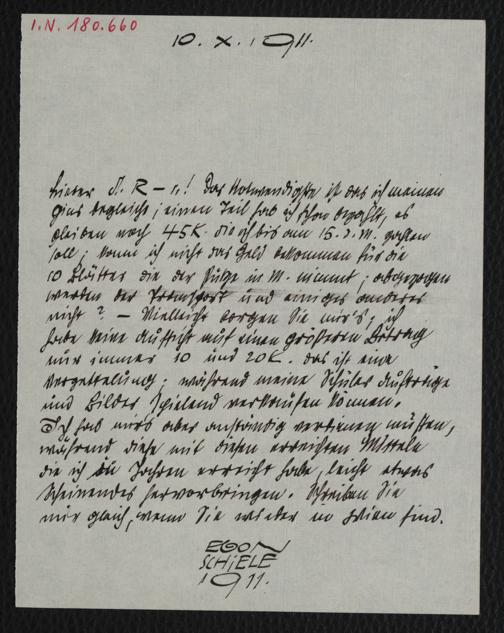 I.N. 180.660
10. X. 1911.
Lieber A. R–r! Das Notwendigste ist das ich meinen
Zins begleiche; einen Teil hab ich schon bezahlt, es
bleiben noch 45 K. die ich bis am 15. d. M. zahlen
soll; kann ich nicht das Geld bekommen für die
10 Blätter die der in M. nimmt; abgezogen
werden der Transport und einiges anderes
nicht? – Vielleicht borgen Sie mir's; ich
habe keine Aussicht auf einen größeren Betrag
nur immer 10 und 20 K. das ist eine
Verzettelung; während meine Schüler Aufträge
und Bilder spielend verkaufen können.
Ich hab mirs aber anständig verdienen müssen,
während diese mit diesen erreichten Mitteln
die ich in Jahren erreicht habe, leicht etwas
Scheinendes hervorbringen. Schreiben Sie
mir gleich, wenn Sie wieder in Wien sind.
EGON
SCHIELE
1911.